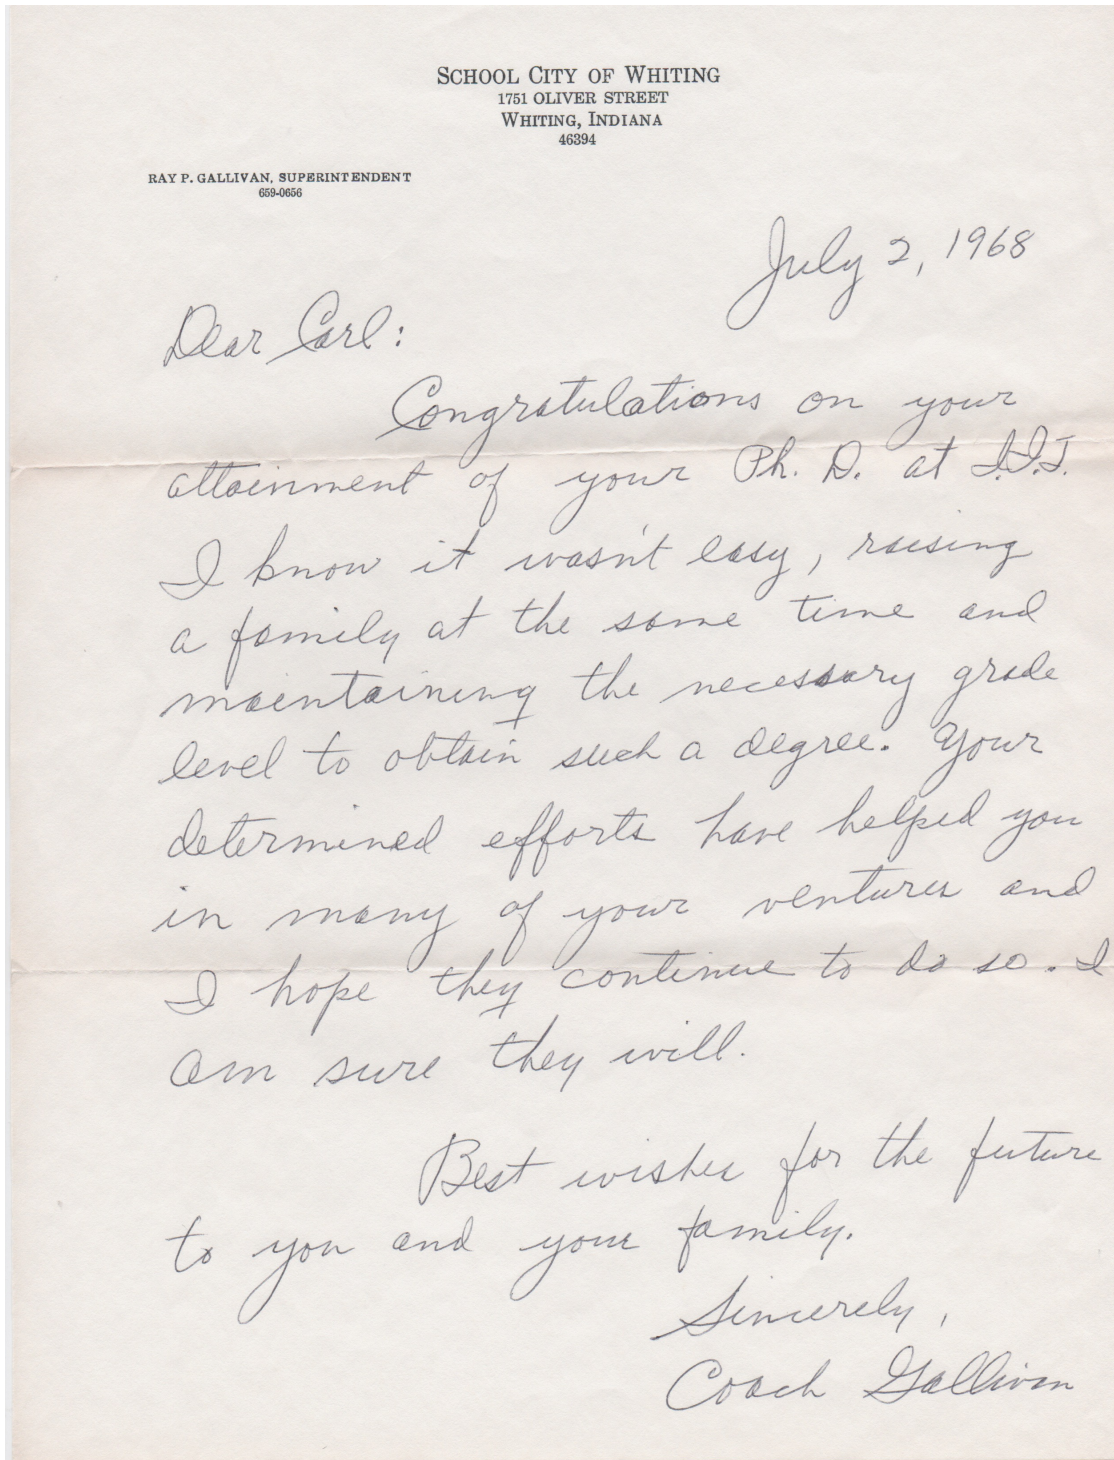 SCHOOL CITY OF WHITING
1751 OLIVER STREET
WHITING, INDIANA
46394
RAY P. GALLIVAN, SUPERINTENDENT
659-0656
July 2, 1968
Dear Carl:
Congratulations on your
attainment of your Ph. D. at I.I.T.
I know it wasn't easy, raising
a family at the same time and
maintaining the necessary grade
level to obtain such a degree. Your
determined efforts have helped you
in many of your ventures and
I hope they continue to do so. I
am sure they will.
Best wishes for the future
to you and your family.
Sincerely,
Coach Gallivan